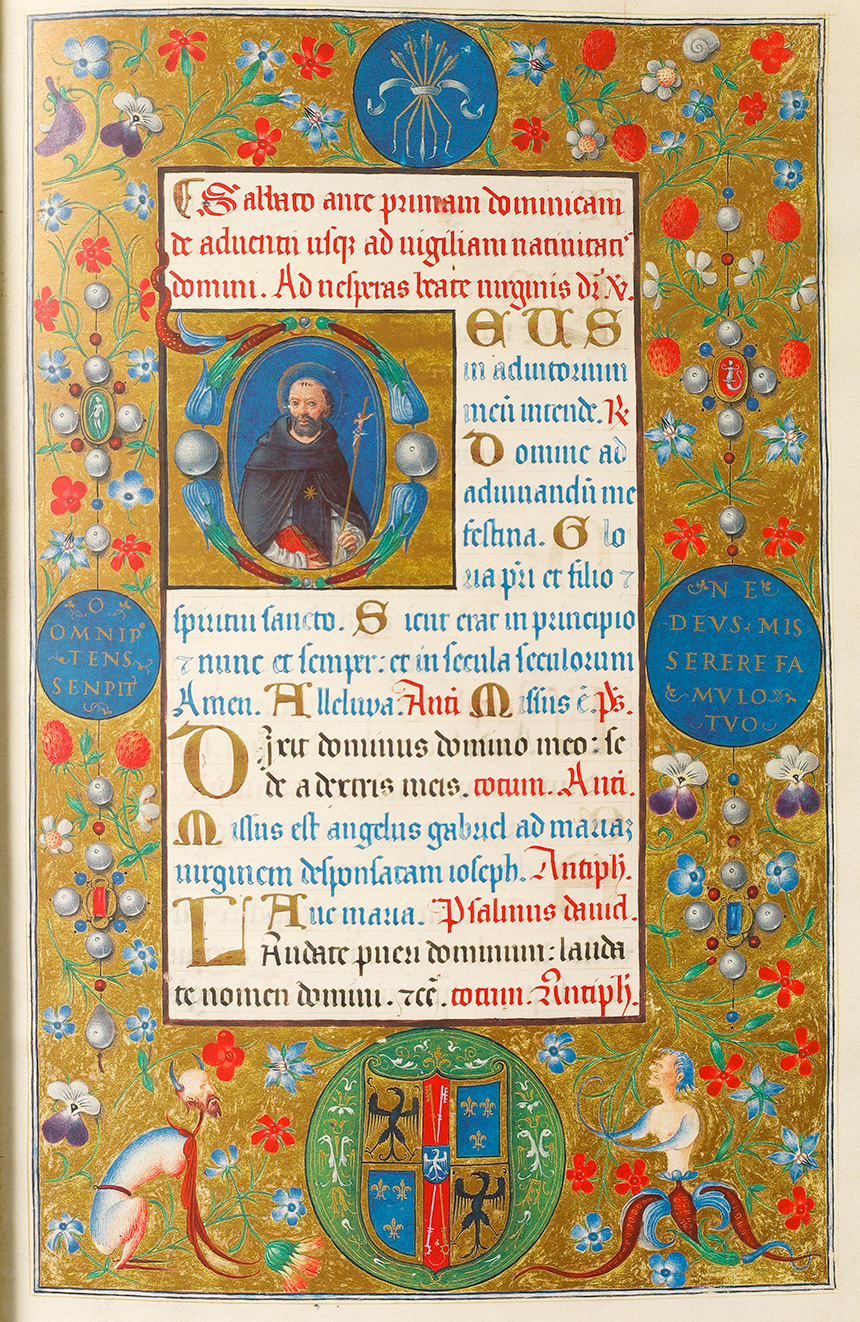 Sabbato ante primam dominicam
de adventu usqꝫ ad vigiliam nativitatꝭ
domini. Ad vesperas beate virginis dr̄ ℣.
DEUS
in adiutorium
meū intende. ℞
Domine ad
adiuvandū me
festina. Glo
ria pr̄i et filio ⁊
spiritui sancto. Sicut erat in principio
⁊ nunc et semper: et in secula seculorum
Amen. Alleluya. Anti Missus ē. ps.
Dixit dominus domino meo: se
de a dextris meis. totum. Anti.
Missus est angelus gabriel ad mariaꝫ
virginem desponsatam ioseph. Antiph.
Ave maria. Psalmus david.
LAudate pueri dominum: lauda
te nomen domini. ⁊cē. totum. Antiph.
O
OMNIP°
TENS
SENPIT
NE
DEVS MIS
SERERE FA
MVLO
TVO